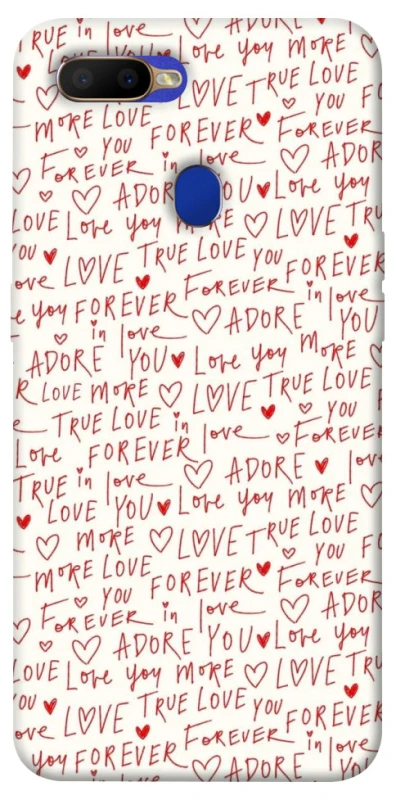 TRUE in love ADORE
LOVE YOU Love you MORE
LOVE TRUE LOVE
MORE LOVE FOREVER YOU FO
YOU FOREVER
FOREVER in love ADOR
ADORE YOU Love you
LOVE Love you MORE LOVE TRU
YOU TRUE LOVE YOU FOREVER
ove LOVE FOREVER
e you FOREVER in love
in love ADORE YOU
ADORE YOU Love you MORE
R LOVE MORE LOVE TRUE LOVE
TRUE LOVE in love YOU
Love FOREVER FOREVER
TRUE in love ADORE lov
LOVE YOU Love you MORE
MORE LOVE TRUE LOVE
MORE LOVE FOREVER YOU FO
YOU FOREVER
FOREVER in love ADOR
ADORE YOU Love you
LOVE Love you MORE LOVE TRU
YOU TRUE LOVE YOU FOREVER
ove LOVE FOREVER
you FOREVER in love
in love ADORE YOU